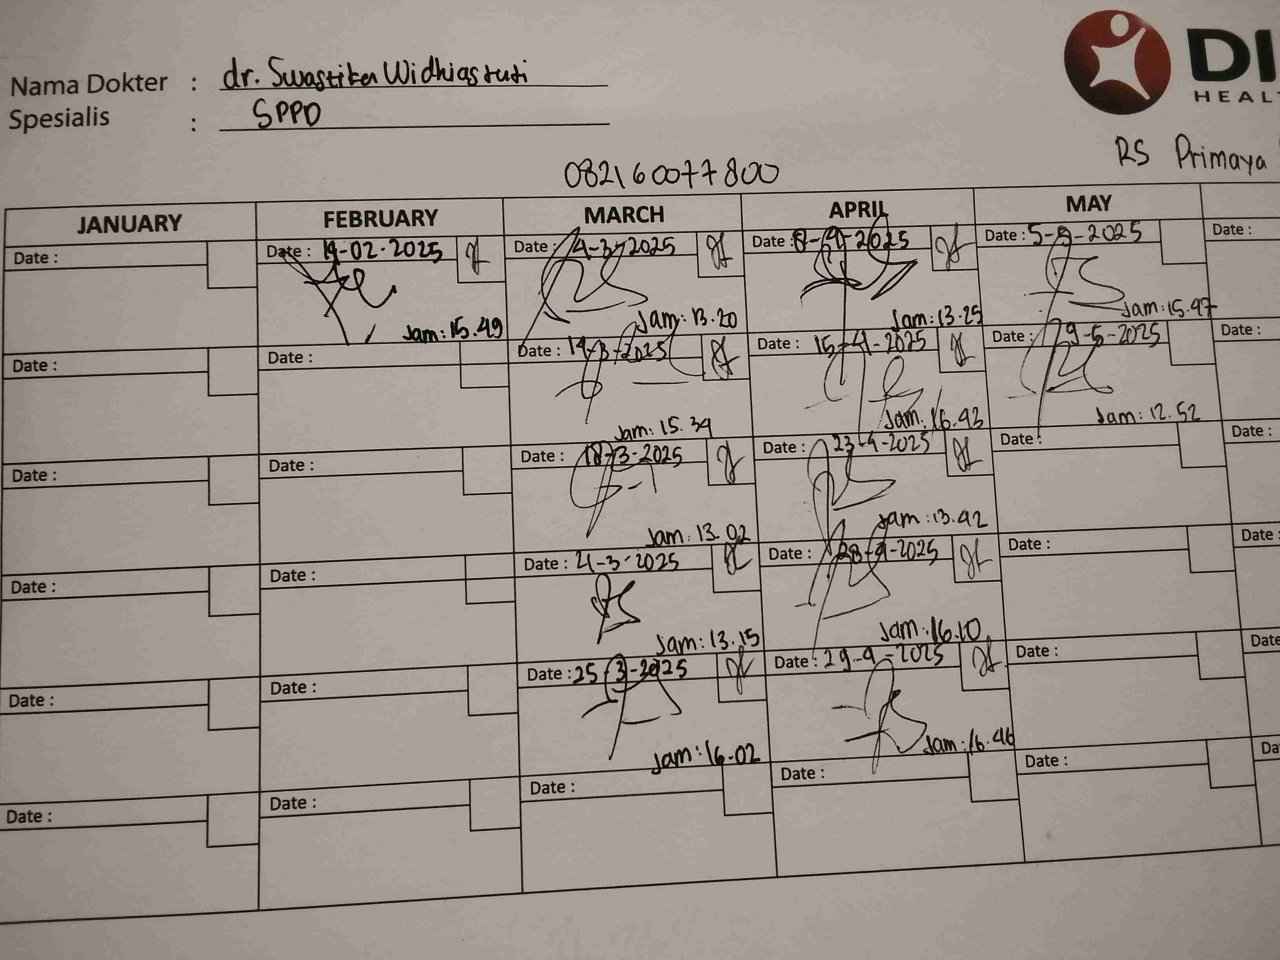 Nama Dokter : dr. Swastika Widhiastuti
Spesialis : SPPD
DI
HEALT
RS Primaya
082160077800
JANUARY FEBRUARY MARCH APRIL MAY
Date : Date : 19-02-2025 Date : 4-3-2025 Date : 8-4-2025 Date : 5-5-2025 Date :
Jam: 15.49 Jam: 13.20 Jam: 13.25 Jam: 15.47
Date : Date : Date : 14-3-2025 Date : 15-4-2025 Date : 19-5-2025 Date :
Jam: 15.34 Jam: 16.43 Jam: 12.52
Date : Date : Date : 18-3-2025 Date : 23-4-2025 Date : Date :
Jam: 13.02 Jam: 13.42
Date : Date : Date : 21-3-2025 Date : 28-4-2025 Date : Date :
Jam: 13.15 Jam: 16.10
Date : Date : Date : 25-3-2025 Date : 29-4-2025 Date : Date
Jam: 16.02 Jam: 16.46
Date : Date : Date : Date : Date : Da